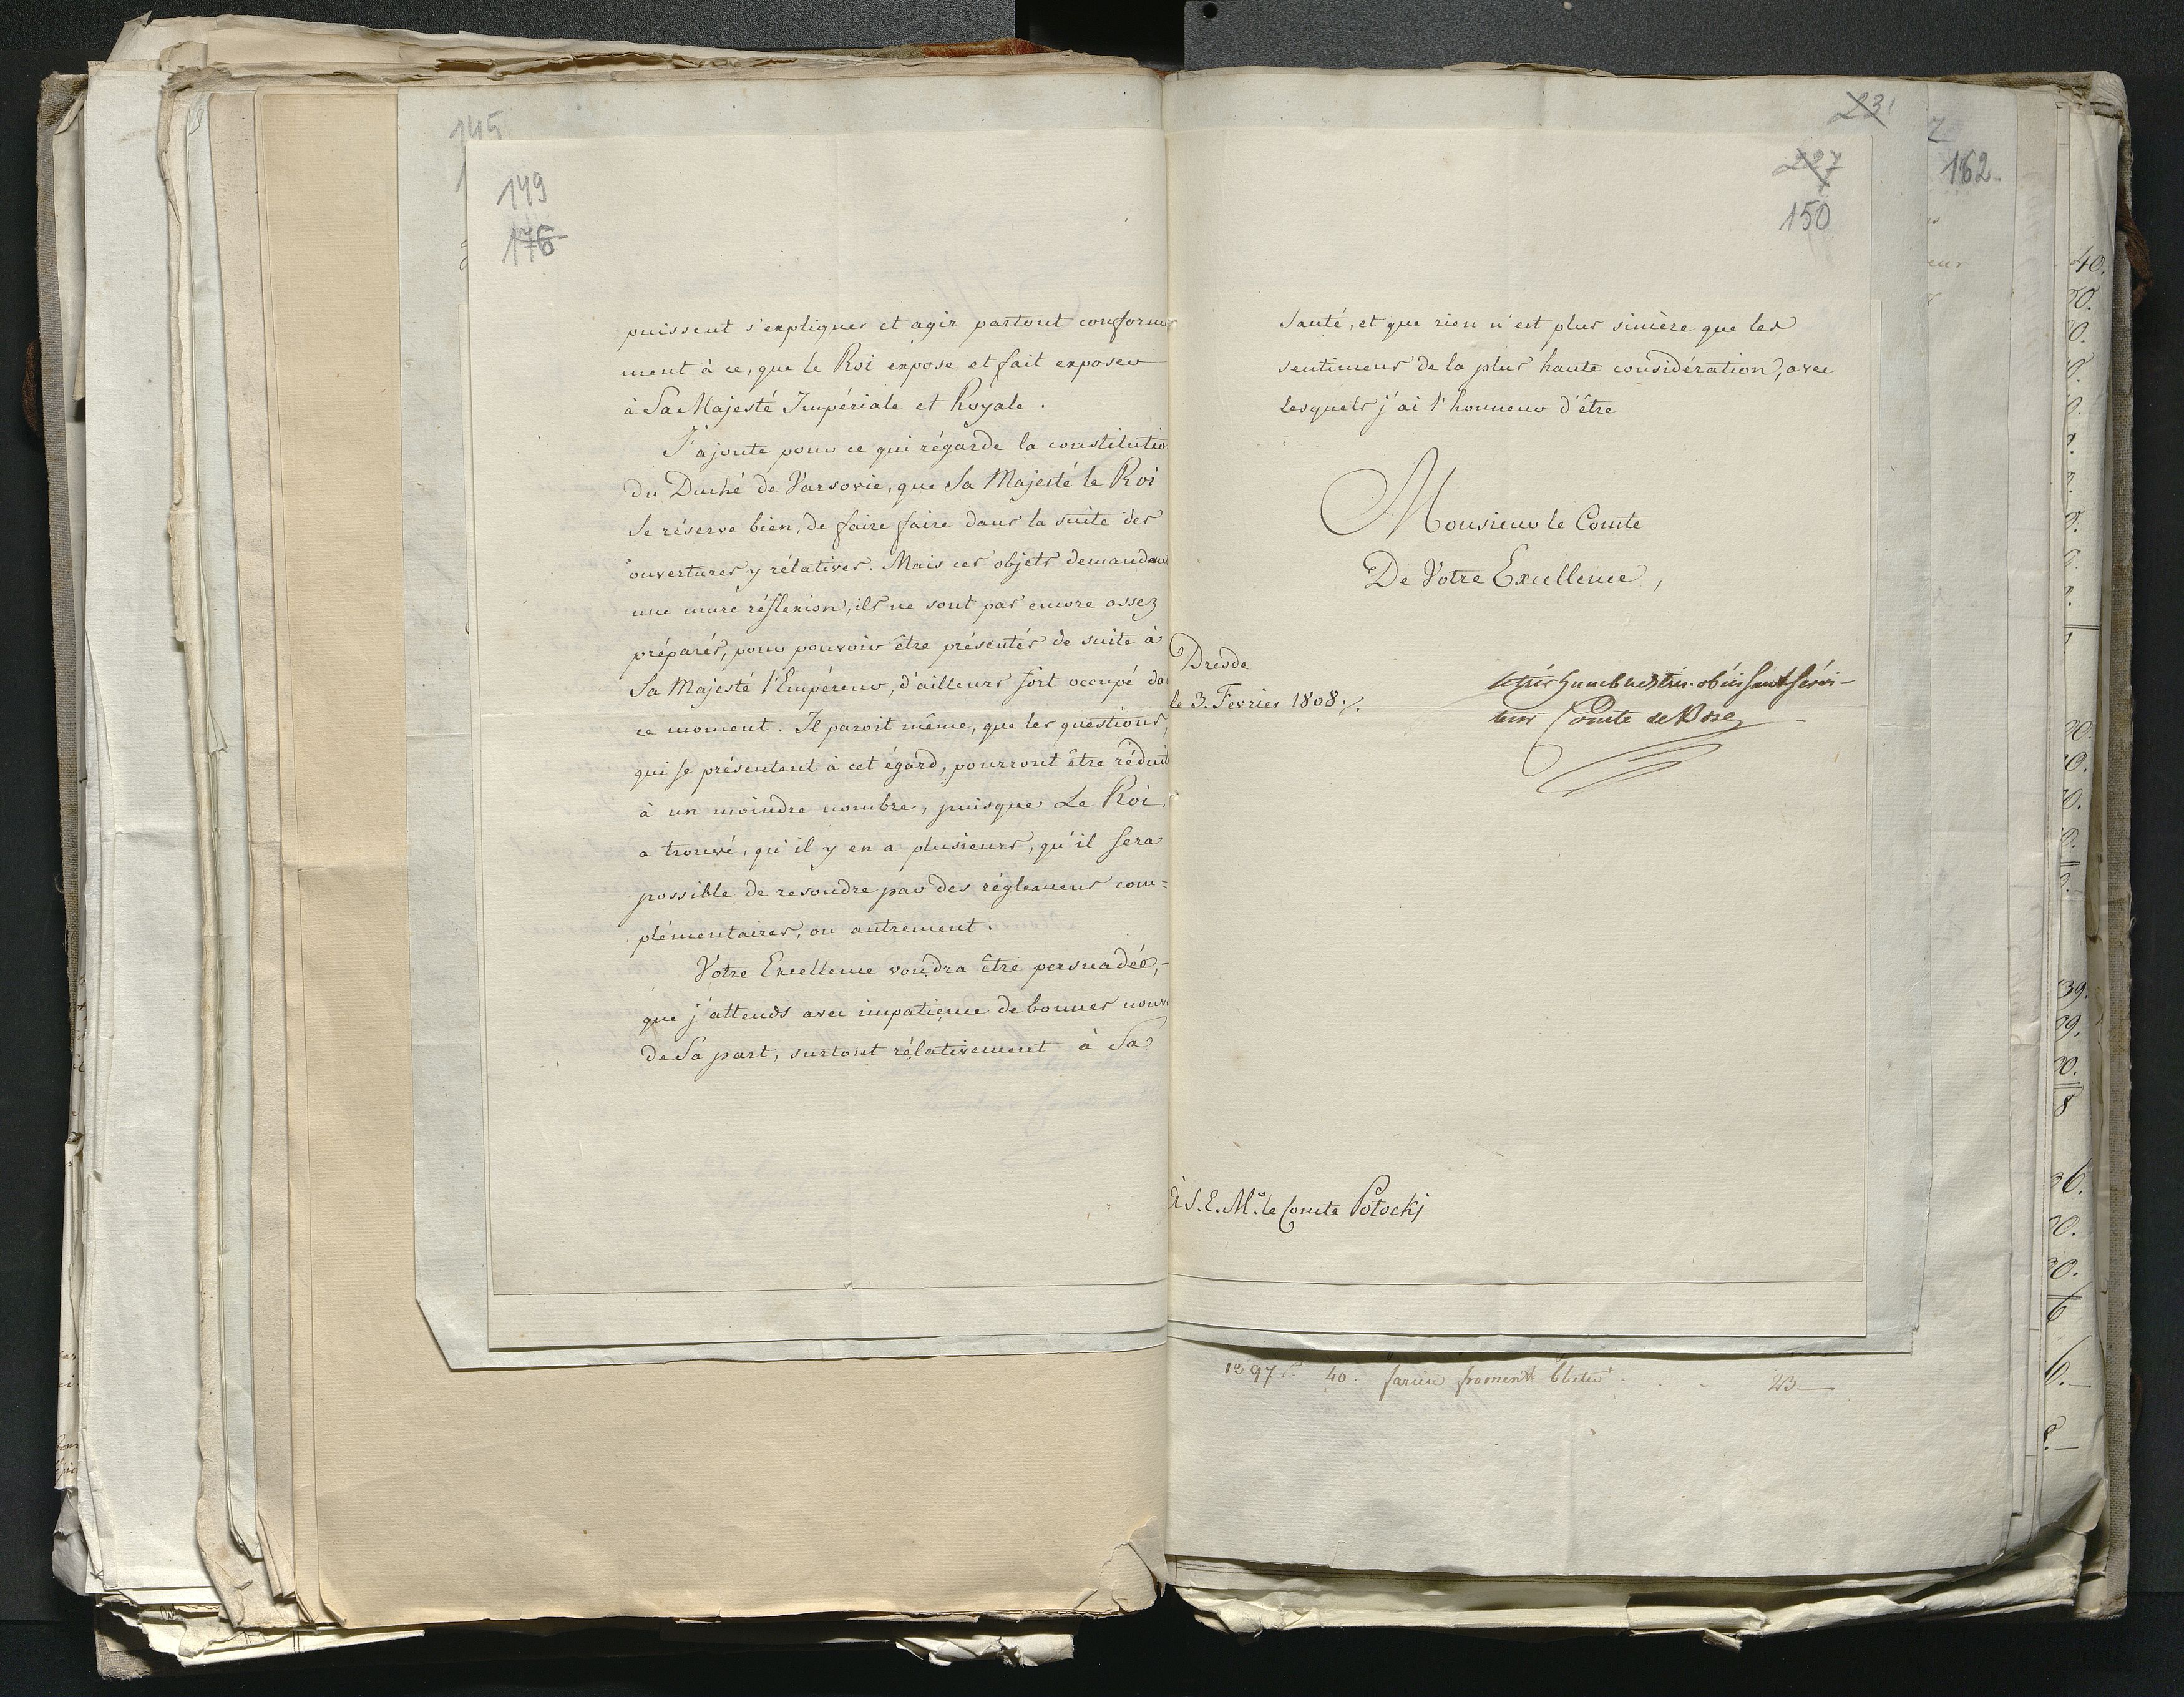 145
149
176
puissent s'expliquer et agir partout conformé
ment à ce, que le Roi expose et fait exposer
à Sa Majesté Impériale et Royale.
J'ajoute pour ce qui régarde la constitutio
du Duché de Varsovie, que Sa Majesté le Roi
Se réserve bien, de faire faire dans la suite des
ouvertures y rélatives. Mais ces objets demandan
une mure réflexion, ils ne sont pas encore assez
préparés, pour pouvoir être présentés de suite à
Sa Majesté l'Empéreur, d'ailleurs fort occupé da
ce moment. Il paroit même, que les questions,
qui se présentent à cet égard, pourront être réduit
à un moindre nombre, puisque Le Roi
a trouvé, qu'il y en a plusieurs, qu'il sera
possible de resoudre par des réglemens com=
plémentaires, ou autrement.
Votre Excellence voudra être persuadée,
que j'attends avec impatience de bonnes nouv
de Sa part, surtout rélativement à Sa
231
227
150
162.
Santé, et que rien n'est plus sincère que les
sentimens de la plus haute considération, avec
lesquels j'ai l'honneur d'être
Monsieur le Comte
De Votre Excellence,
Dresde
le 3. Fevrier 1808.
le très humble et très obéissant sérvi-
teur Comte de Bose
À S. E. Mr. le Comte Potocki
1297 40. farine froment blutée 23.